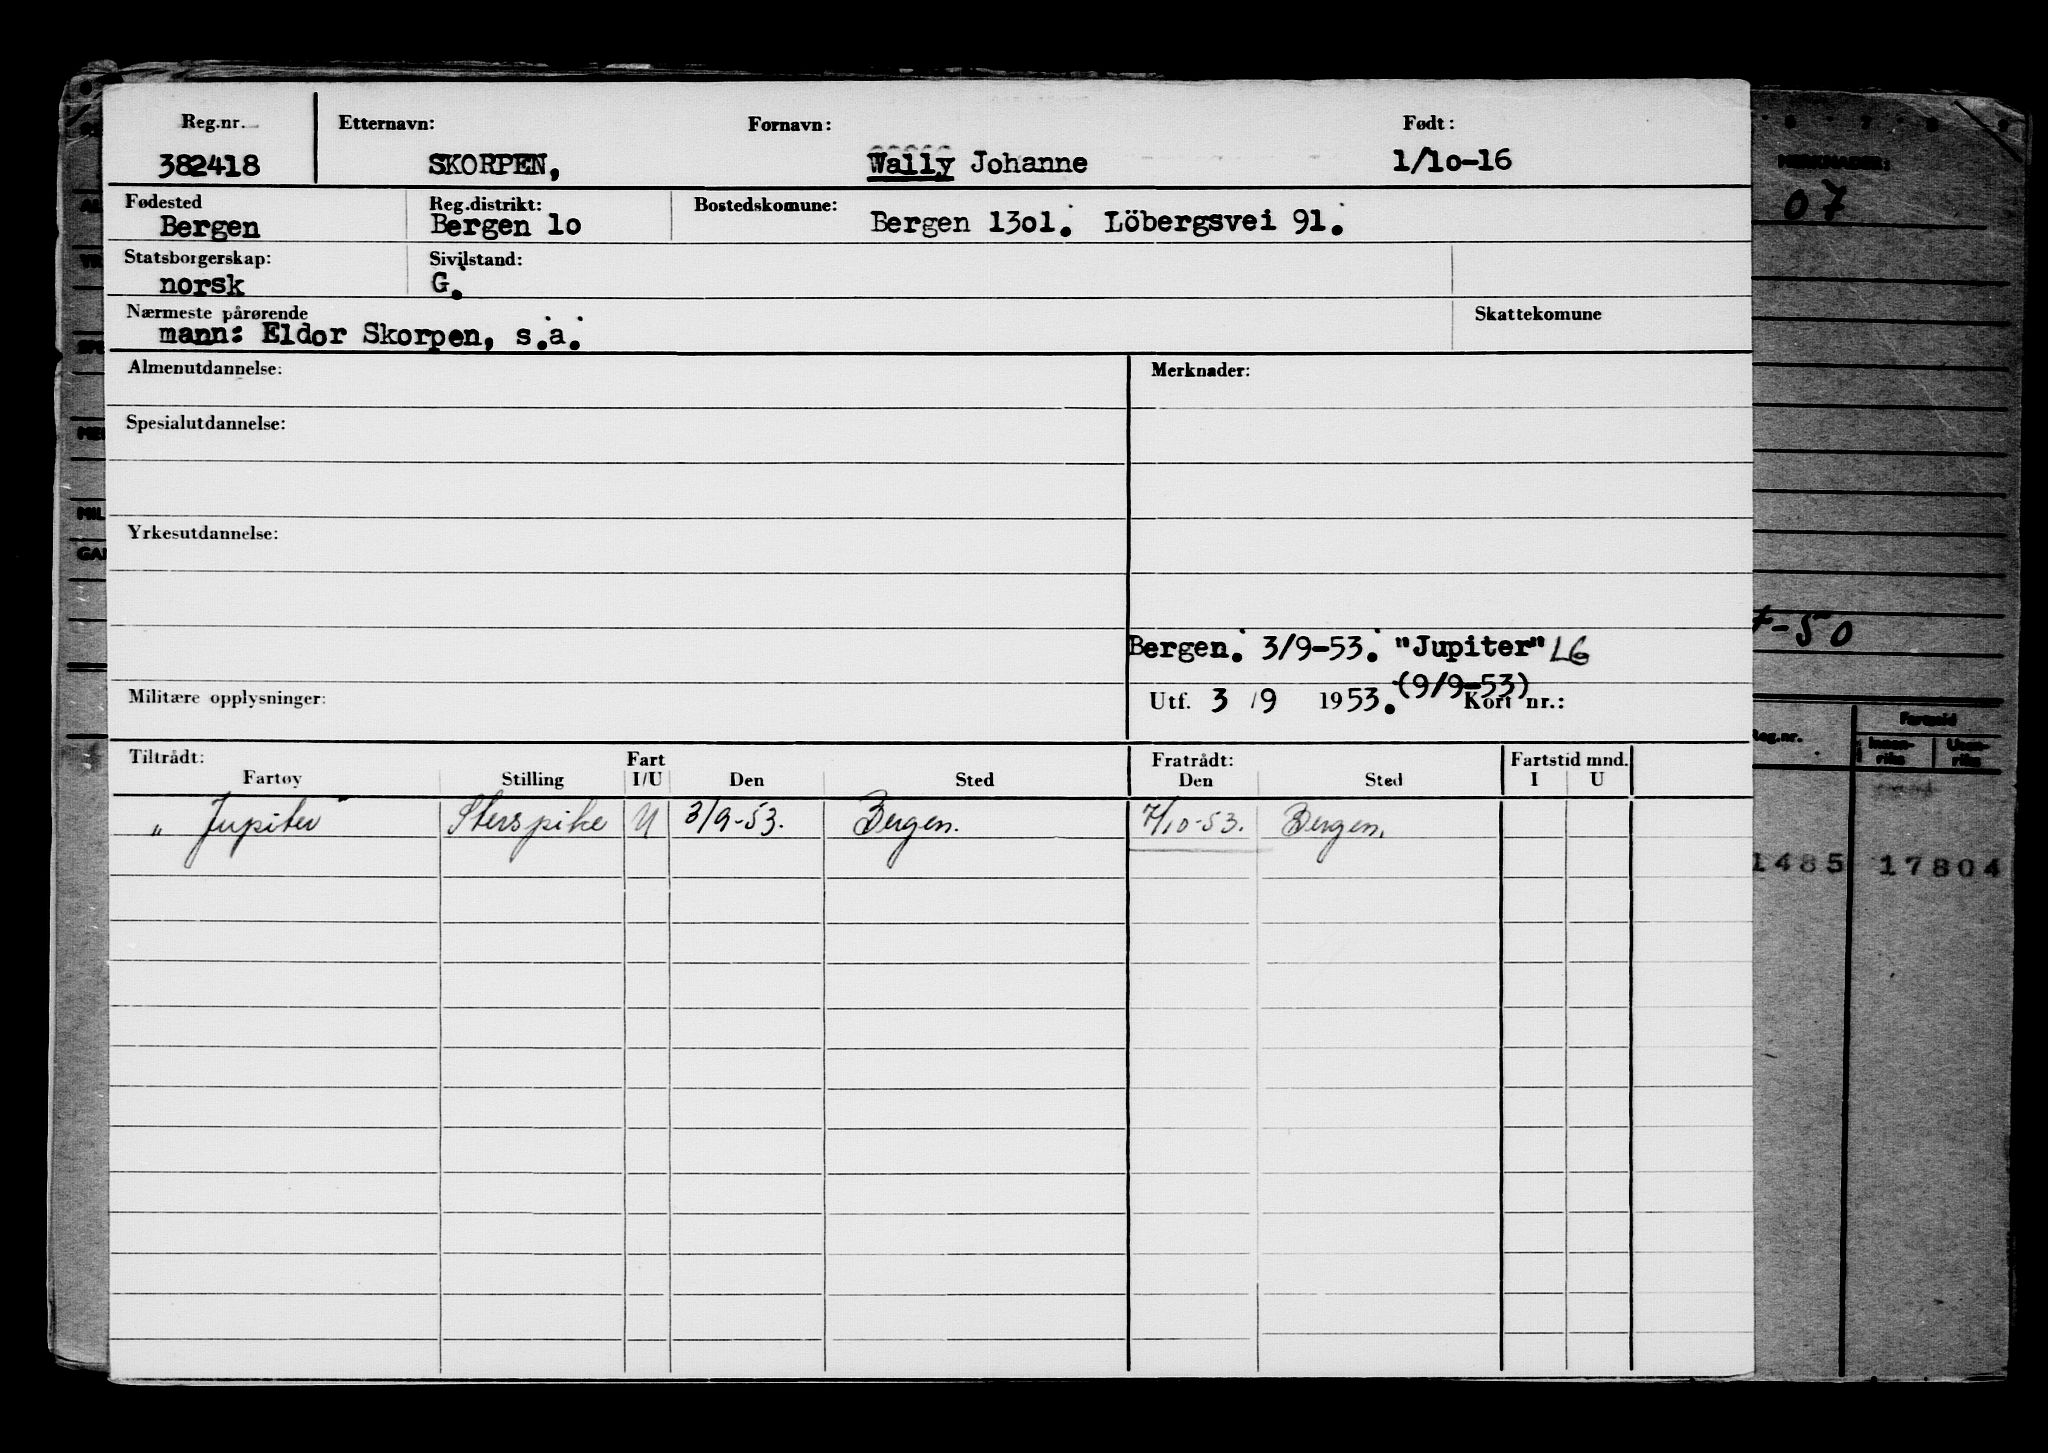 Reg.nr. Etternavn: Fornavn: Født:
382418 SKORPEN, Wally Johanne 1/1o-16
MERKNADER:
07
Fødested Reg.distrikt: Bostedskomune:
Bergen Bergen 1o Bergen 13o1. Löbergsvei 91.
Statsborgerskap: Sivilstand:
norsk G.
Nærmeste pårørende Skattekomune
mann: Eldor Skorpen, s.a.
Almenutdannelse: Merknader:
Spesialutdannelse:
Yrkesutdannelse:
-50
Bergen. 3/9-53. "Jupiter" LG
(9/9-53)
Militære opplysninger: Utf. 3 /9 1953. Kort nr.:
Tiltrådt: Fart Fratrådt: Fartstid mnd.
Fartøy Stilling I/U Den Sted Den Sted I U
"Jupiter" U 3/9-53. Bergen. 7/10-53. Bergen.
1485 17804